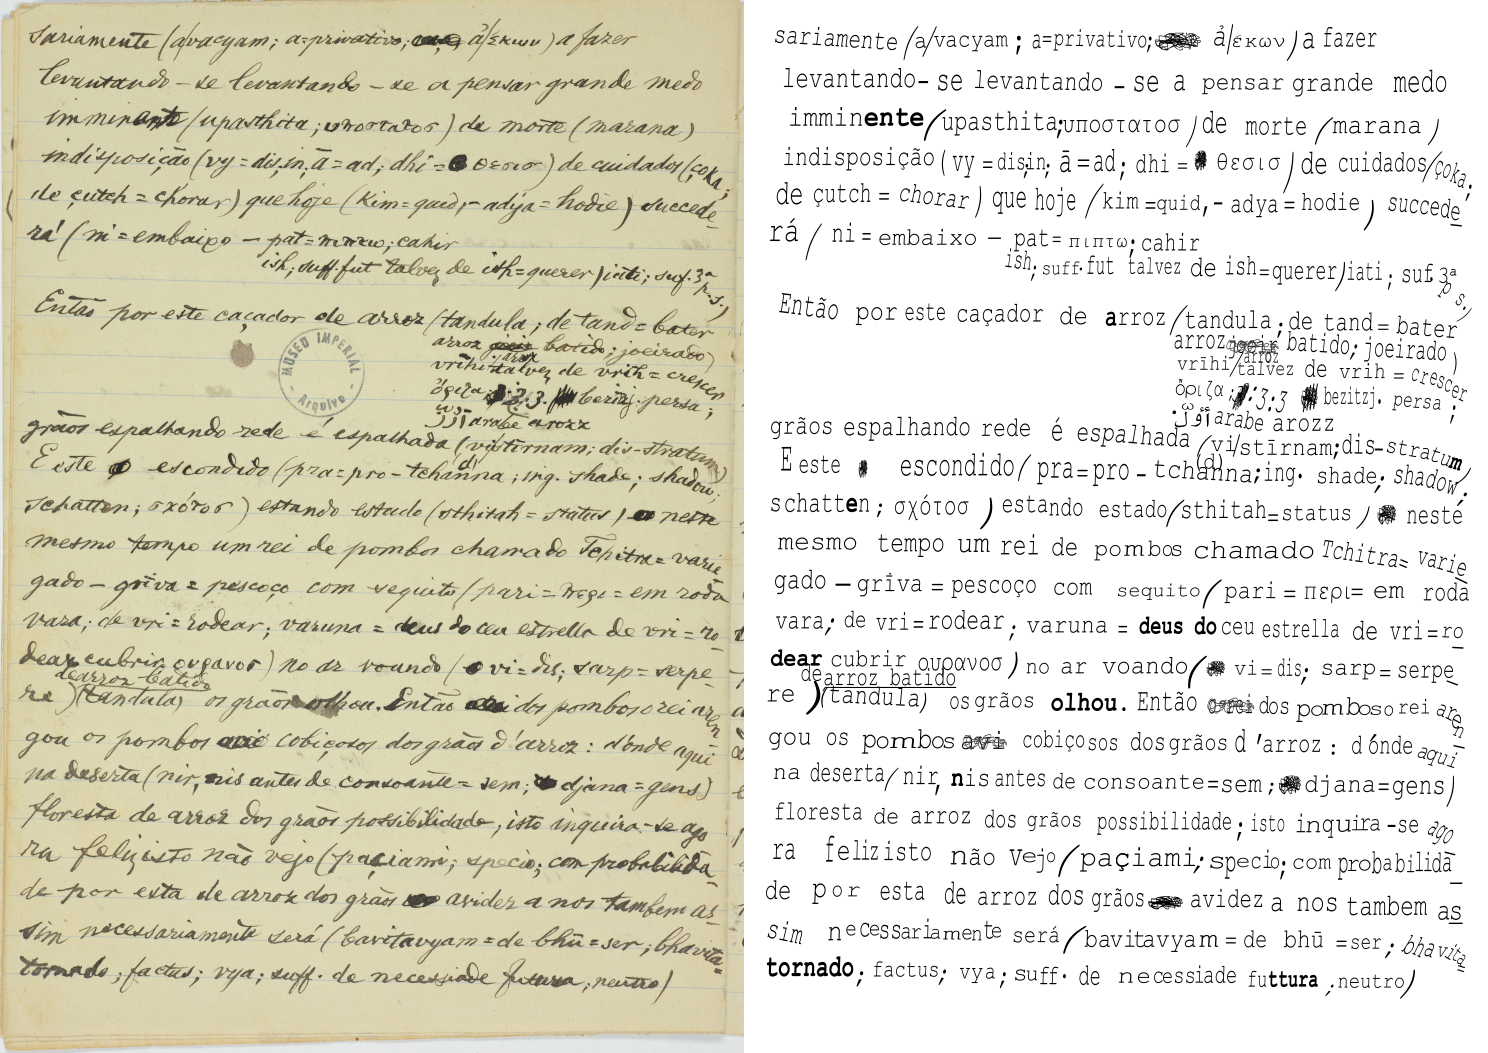 sariamente (a/vacyam; a=privativo; ἀ/έκων) a fazer
levantando-se levantando-se a pensar grande medo
imminente (upasthita; υποστατοσ) de morte (marana)
indisposição (vy=dis,in; ā=ad; dhi= θεσισ) de cuidados (çoka;
de çutch = chorar) que hoje (kim=quid,- adya=hodie) succede_
rá (ni=embaixo - pat=πιπτω; cahir
ish; suff. fut talvez de ish=querer) iati; suf. 3ª
p. s.)
Então por este caçador de arroz (tandula; de tand=bater
arroz batido; joeirado)
vrīhi/arroz talvez de vrih=crescer
ὀριζα; 3:3 berizj. persa;
arabe arozz
grãos espalhando rede é espalhada (vi/stīrnam; dis-stratum)
(d)
E este escondido (pra=pro-tchanna; ing. shade; shadow;
schatten; σχότοσ) estando estado (sthitah=status) neste
mesmo tempo um rei de pombos chamado Tchitra=varie_
gado - grīva=pescoço com sequito (pari=περι=em roda
vara; de vri=rodear; varuna=deus do ceu estrella de vri=ro_
dear cubrir ουρανοσ) no ar voando ( vi=dis; sarp=serpe_
de arroz batido
re) (tandula) os grãos olhou. Então dos pombos o rei aren_
gou os pombos cobiçosos dos grãos d'arroz: d'ónde aqui
na deserta (nir, nis antes de consoante=sem; djana=gens)
floresta de arroz dos grãos possibilidade; isto inquira-se ago
ra feliz isto não vejo (paçiami; specio; com probabilida_
de por esta de arroz dos grãos avidez a nos tambem as_
sim necessariamente será (bavitavyam=de bhū=ser; bhavita=
tornado; factus; vya; suff. de necessiade futura; neutro)
MUSEO IMPERIAL
- Arquivo -
sariamente (a/vacyam; a=privativo; ἀ/έκων) a fazer
levantando-se levantando-se a pensar grande medo
imminente (upasthita; υποστατοσ) de morte (marana)
indisposição (vy=dis,in; ā=ad; dhi= θεσισ) de cuidados/çoka;
de çutch = chorar) que hoje (kim=quid,- adya=hodie) succede_
rá (ni=embaixo - pat=πιπτω; cahir
ish; suff. fut talvez de ish=querer) iati; suf. 3ª
p s.)
Então por este caçador de arroz (tandula; de tand=bater
arroz batido; joeirado)
vrīhi/arroz talvez de vrih=crescer
ὀριζα; 3:3 bezitzj. persa;
arabe arozz
grãos espalhando rede é espalhada (vi/stīrnam; dis-stratum
(d)
E este escondido (pra=pro-tchanna; ing. shade; shadow;
schatten; σχότοσ) estando estado (sthitah=status) nesté
mesmo tempo um rei de pombos chamado Tchitra=varie_
gado - grīva=pescoço com sequito (pari=περι=em roda
vara; de vri=rodear; varuna=deus do ceu estrella de vri=ro
dear cubrir ουρανοσ) no ar voando ( vi=dis; sarp=serpe_
de arroz batido
re) (tandula) os grãos olhou. Então dos pombos o rei aren_
gou os pombos avi cobiçosos dos grãos d'arroz: dónde aqui
na deserta (nir, nis antes de consoante=sem; djana=gens)
floresta de arroz dos grãos possibilidade; isto inquira-se ago
ra feliz isto não Vejo (paçiami; specio; com probabilidā_
de por esta de arroz dos grãos avidez a nos tambem as_
sim necessariamente será (bavitavyam=de bhū=ser; bhavita=
tornado; factus; vya; suff. de necessiade futtura; neutro)